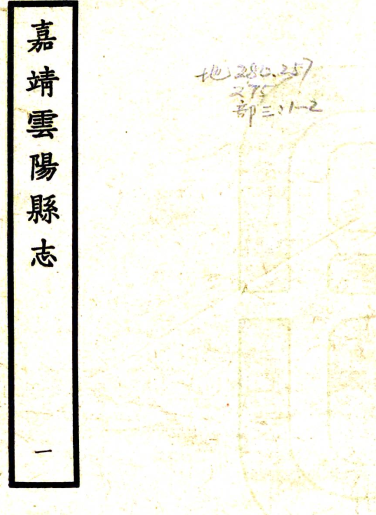 嘉靖雲陽縣志
一
地 280.257
275
部三:1-2